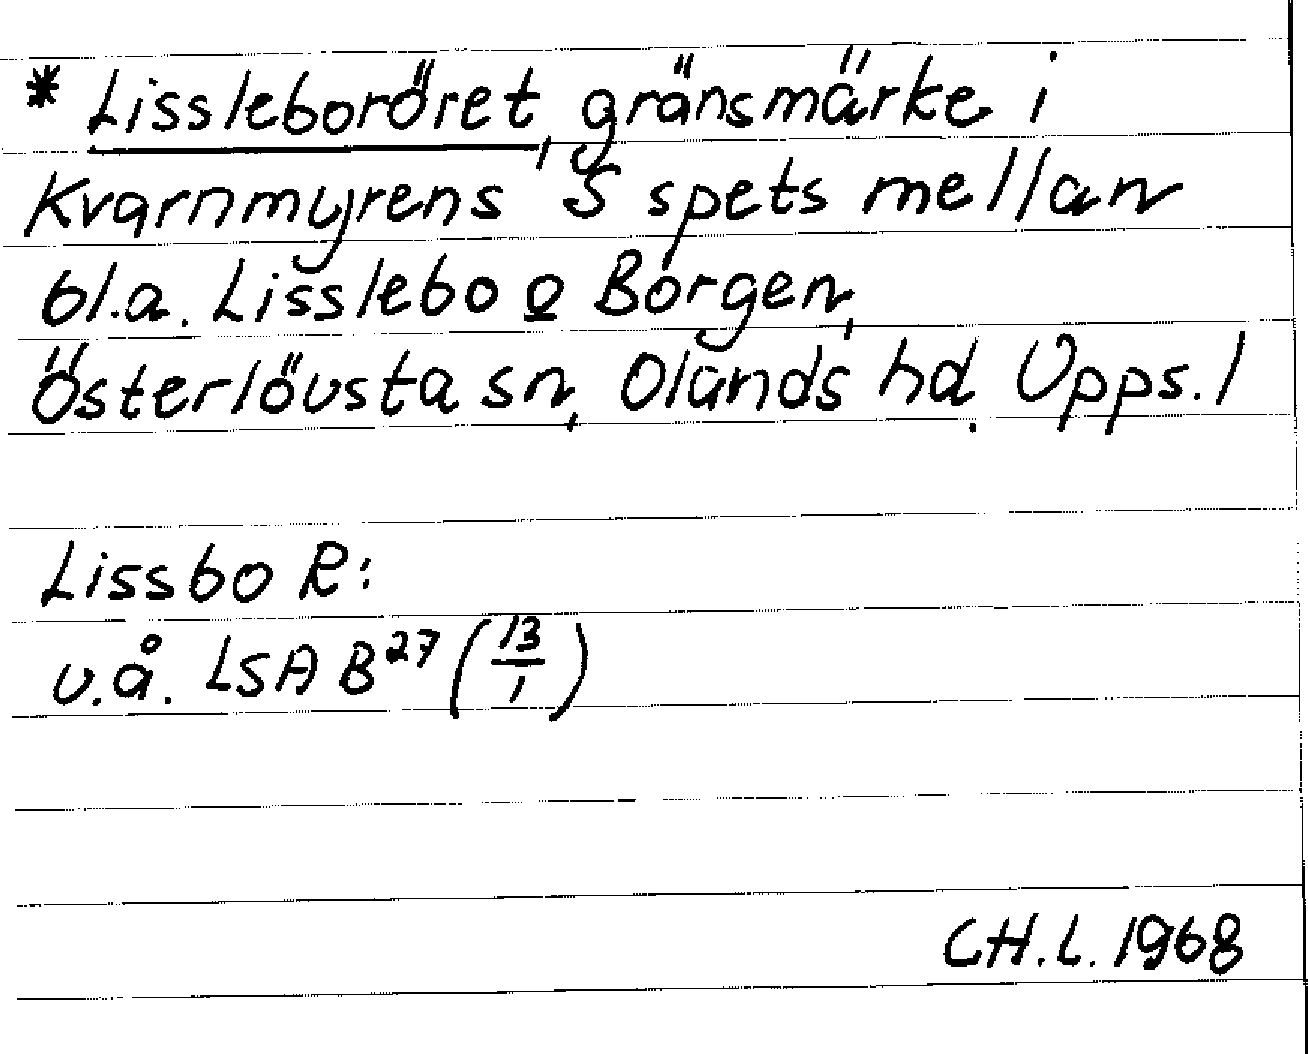 * Lissleboröret, gränsmärke i
Kvarnmyrens S spets mellan
bl.a. Lisslebo o Borgen,
Österlövsta sn, Olands hd. Upps. l
Lissbo R:
u.å. LSA B²⁷ (13/1)
CH.L. 1968